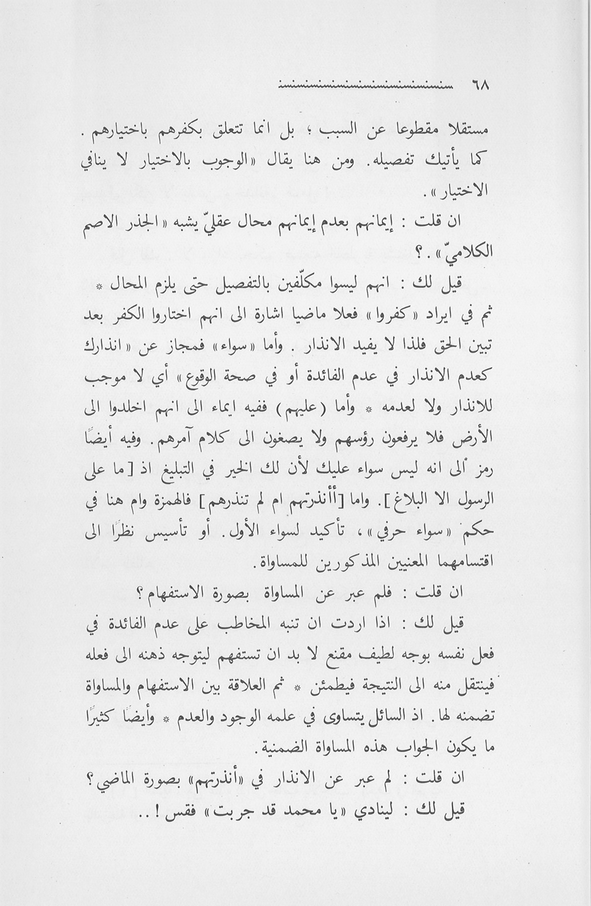 ٦٨
مستقلا مقطوعا عن السبب ؛ بل انما تتعلق بكفرهم باختيارهم .
كما يأتيك تفصيله. ومن هنا يقال «الوجوب بالاختيار لا ينافي
الاختيار».
ان قلت : إيمانهم بعدم إيمانهم محال عقليّ يشبه «الجذر الاصم
الكلاميّ» .؟
قيل لك : انهم ليسوا مكلّفين بالتفصيل حتى يلزم المحال *
ثم في ايراد «كفروا» فعلا ماضيا اشارة الى انهم اختاروا الكفر بعد
تبين الحق فلذا لا يفيد الانذار . وأما «سواء» فمجاز عن «انذارك
كعدم الانذار في عدم الفائدة أو في صحة الوقوع» أي لا موجب
للانذار ولا لعدمه * وأما (عليهم) ففيه ايماء الى انهم اخلدوا الى
الأرض فلا يرفعون رؤسهم ولا يصغون الى كلام آمرهم. وفيه أيضًا
رمز ألى انه ليس سواء عليك لأن لك الخير في التبليغ اذ [ما على
الرسول الا البلاغ]. واما [أأنذرتهم ام لم تنذرهم] فالهمزة وام هنا في
حكم «سواء حرفي»، تأكيد لسواء الأول. أو تأسيس نظرًا الى
اقتسامهما المعنيين المذكورين للمساواة.
ان قلت : فلم عبر عن المساواة بصورة الاستفهام؟
قيل لك : اذا اردت ان تنبه المخاطب على عدم الفائدة في
فعل نفسه بوجه لطيف مقنع لا بد ان تستفهم ليتوجه ذهنه الى فعله
فينتقل منه الى النتيجة فيطمئن * ثم العلاقة بين الاستفهام والمساواة
تضمنه لها. اذ السائل يتساوى في علمه الوجود والعدم * وأيضًا كثيرًا
ما يكون الجواب هذه المساواة الضمنية.
ان قلت : لم عبر عن الانذار في «أنذرتهم» بصورة الماضي؟
قيل لك : لينادي «يا محمد قد جربت» فقس !..